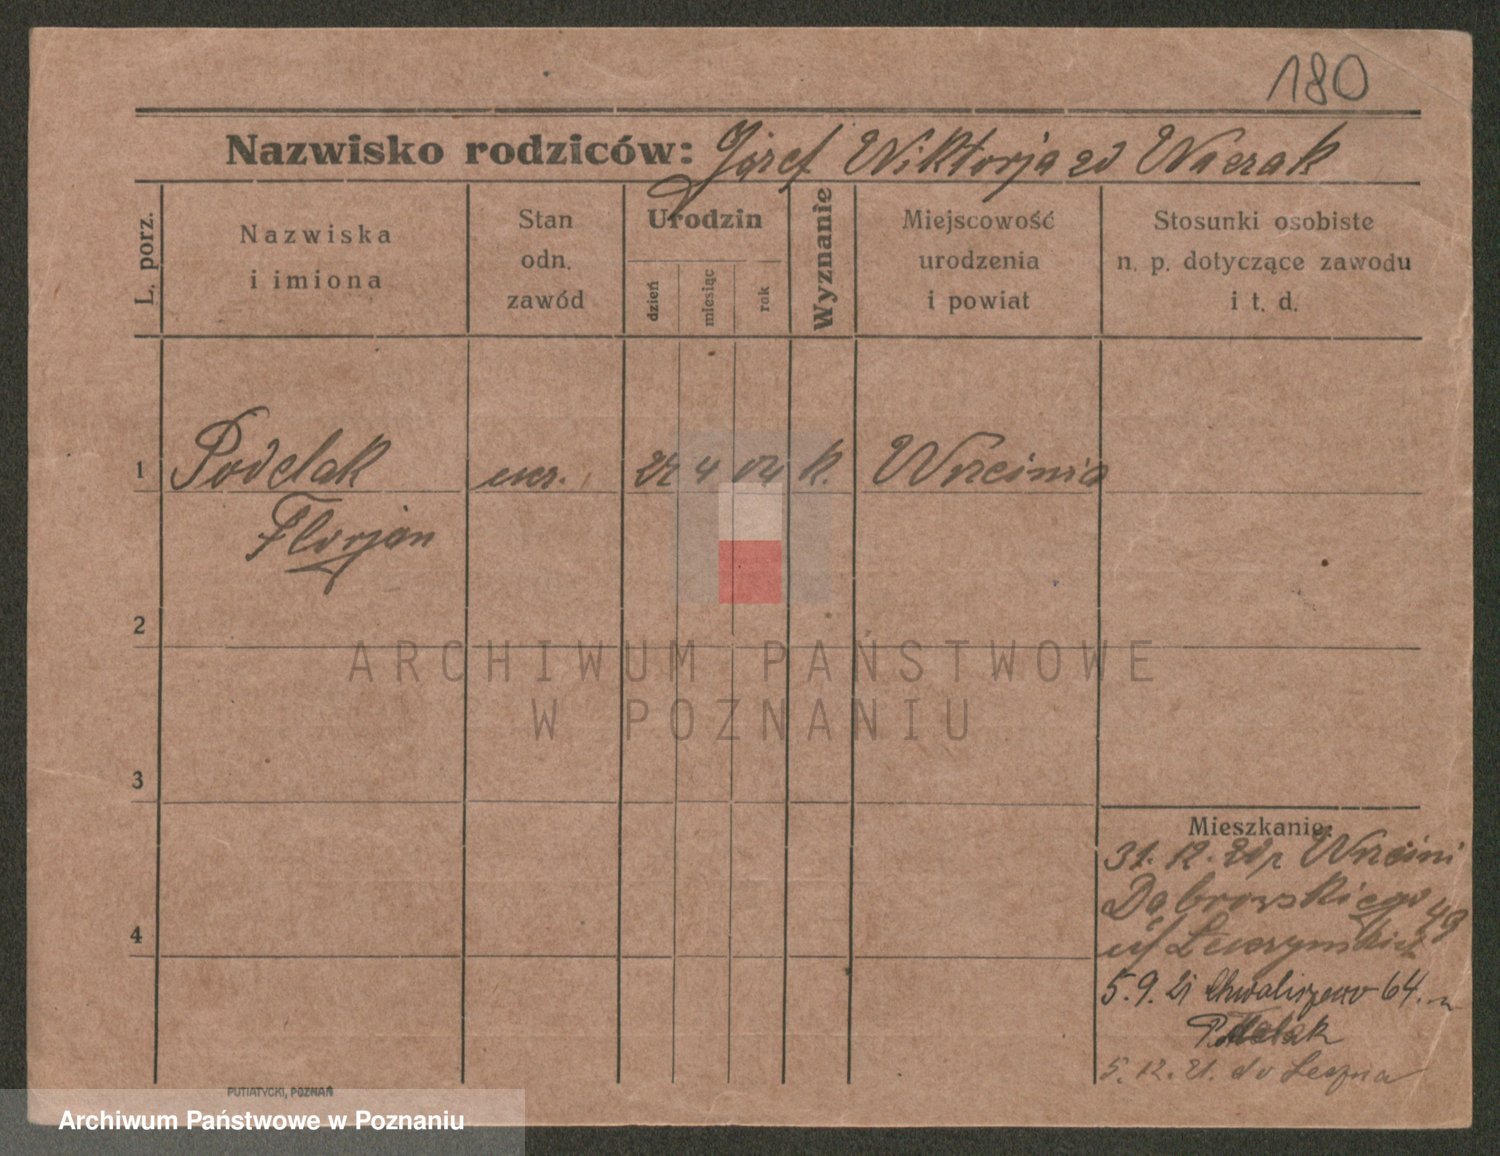 180
Nazwisko rodziców: Józef Wiktorja zd Waerak
L. porz.
Nazwiska
i imiona
Stan
odn.
zawód
Urodzin
dzień
miesiąc
rok
Wyznanie
Miejscowość
urodzenia
i powiat
Stosunki osobiste
n. p. dotyczące zawodu
i t. d.
1 Podelak 4 04 k.
Florjan
2
3
4
ARCHIWUM PAŃSTWOWE
W POZNANIU
Mieszkanie:
31. 12. 20
Dąbrowskiego 49
5. 9. 21 Chwaliszewo 64.
5. 12. 21. do
PUTIATYCKI, POZNAŃ
Archiwum Państwowe w Poznaniu